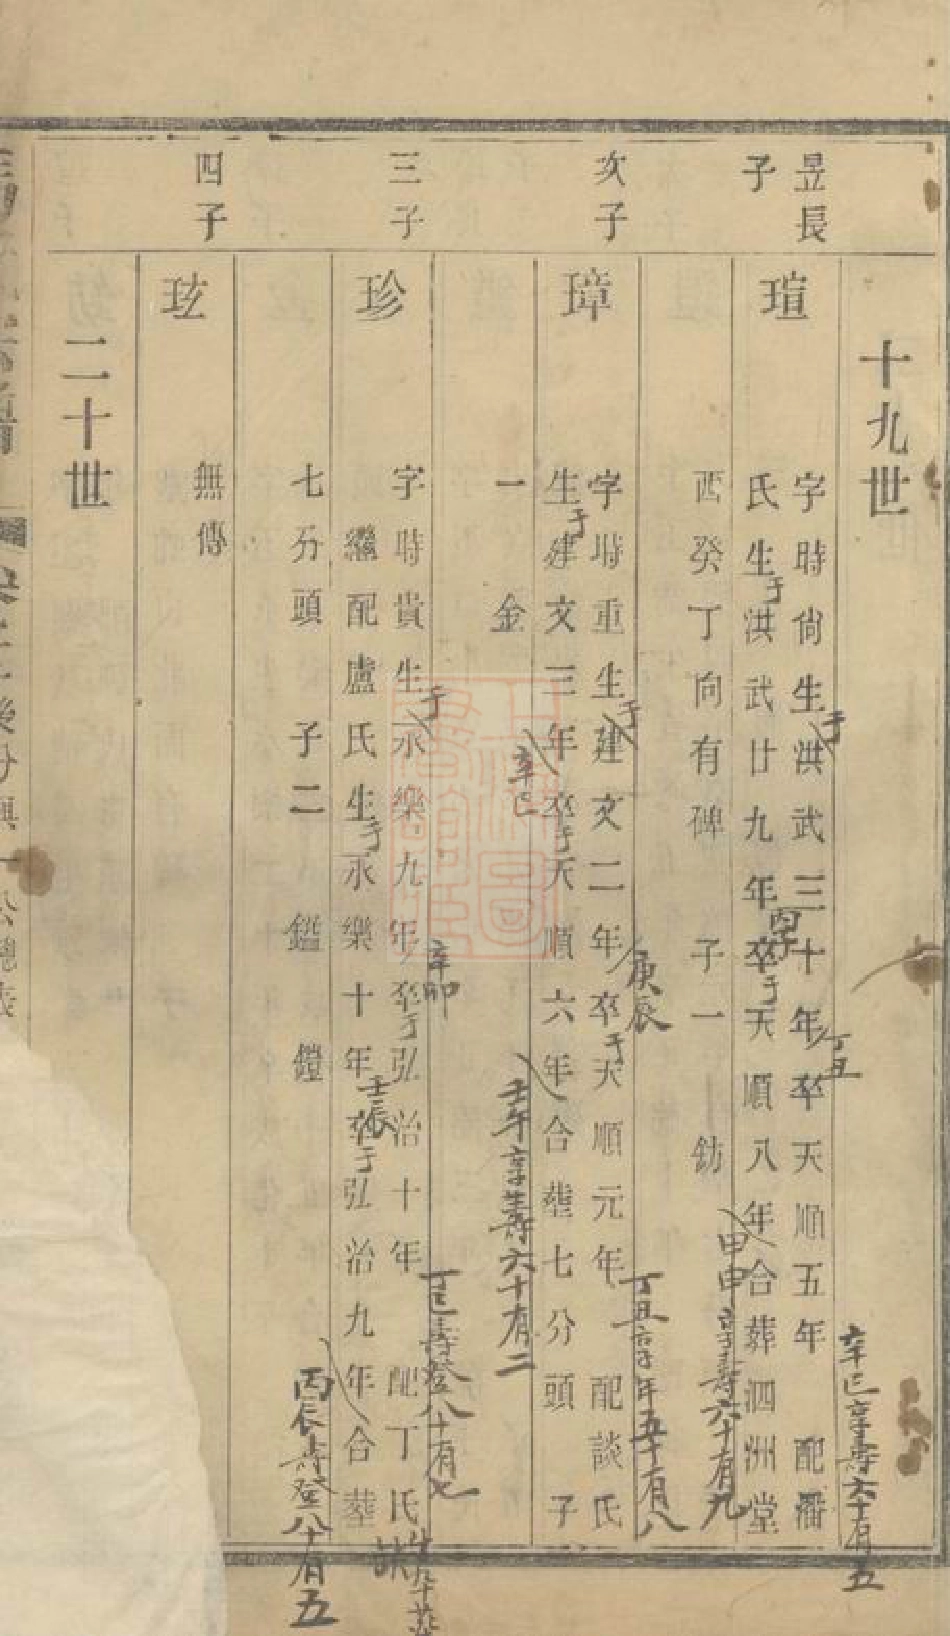 十九世
昱長
子
瑄
字時尙生于洪武三十年丁丑卒天順五年辛巳享壽六十有五配潘
氏生于洪武廿九年丙子卒于天順八年甲申享壽六十有九合葬泗洲堂
酉癸丁向有碑　子一　鈁
次子
璋
字時重生于建文二年庚辰卒于天順元年丁丑享年五十有八配談氏
生于建文三年辛巳卒于天順六年壬午享壽六十有二合塟七分頭　子
一　金
三子
珍
字時貴生于永樂九年辛卯卒于弘治十年丁巳壽登八十有七配丁氏
繼配盧氏生于永樂十年壬辰卒于弘治九年丙辰壽登八十有五合塟
七分頭　子二　鎰　鏜
四子
玹
無傳
二十世